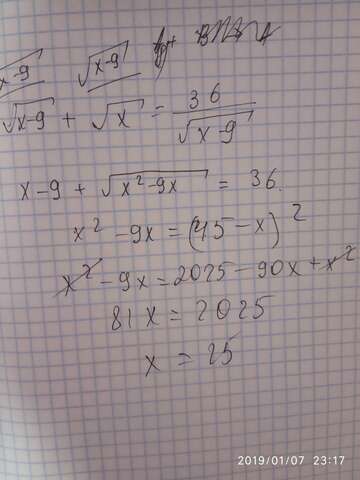 √x-9 √x-9
√x-9 + √x = 36/√x-9
x-9 + √x²-9x = 36.
x² - 9x = (45-x)²
x² - 9x = 2025 - 90x + x²
81x = 2025
x = 25
2019/01/07 23:17